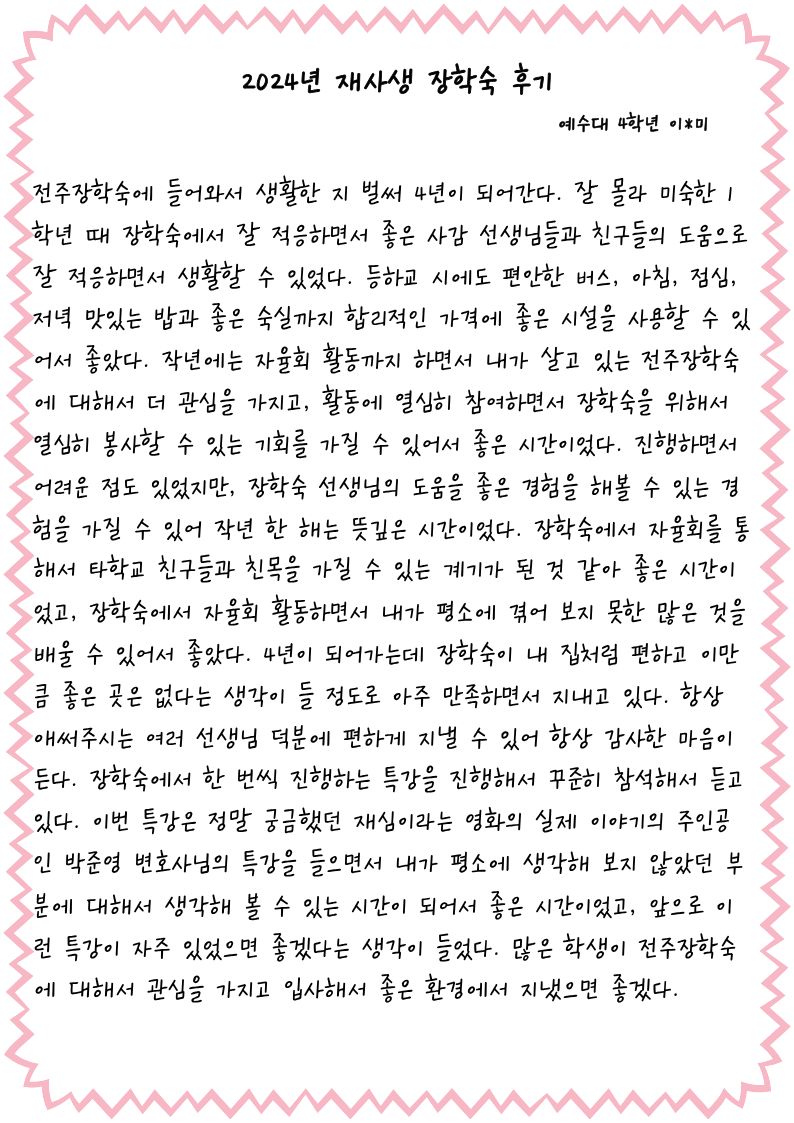 2024년 재사생 장학숙 후기
예수대 4학년 이*미
전주장학숙에 들어와서 생활한 지 벌써 4년이 되어간다. 잘 몰라 미숙한 1
학년 때 장학숙에서 잘 적응하면서 좋은 사감 선생님들과 친구들의 도움으로
잘 적응하면서 생활할 수 있었다. 등하교 시에도 편안한 버스, 아침, 점심,
저녁 맛있는 밥과 좋은 숙실까지 합리적인 가격에 좋은 시설을 사용할 수 있
어서 좋았다. 작년에는 자율회 활동까지 하면서 내가 살고 있는 전주장학숙
에 대해서 더 관심을 가지고, 활동에 열심히 참여하면서 장학숙을 위해서
열심히 봉사할 수 있는 기회를 가질 수 있어서 좋은 시간이었다. 진행하면서
어려운 점도 있었지만, 장학숙 선생님의 도움을 좋은 경험을 해볼 수 있는 경
험을 가질 수 있어 작년 한 해는 뜻깊은 시간이었다. 장학숙에서 자율회를 통
해서 타학교 친구들과 친목을 가질 수 있는 계기가 된 것 같아 좋은 시간이
었고, 장학숙에서 자율회 활동하면서 내가 평소에 겪어 보지 못한 많은 것을
배울 수 있어서 좋았다. 4년이 되어가는데 장학숙이 내 집처럼 편하고 이만
큼 좋은 곳은 없다는 생각이 들 정도로 아주 만족하면서 지내고 있다. 항상
애써주시는 여러 선생님 덕분에 편하게 지낼 수 있어 항상 감사한 마음이
든다. 장학숙에서 한 번씩 진행하는 특강을 진행해서 꾸준히 참석해서 듣고
있다. 이번 특강은 정말 궁금했던 재심이라는 영화의 실제 이야기의 주인공
인 박준영 변호사님의 특강을 들으면서 내가 평소에 생각해 보지 않았던 부
분에 대해서 생각해 볼 수 있는 시간이 되어서 좋은 시간이었고, 앞으로 이
런 특강이 자주 있었으면 좋겠다는 생각이 들었다. 많은 학생이 전주장학숙
에 대해서 관심을 가지고 입사해서 좋은 환경에서 지냈으면 좋겠다.